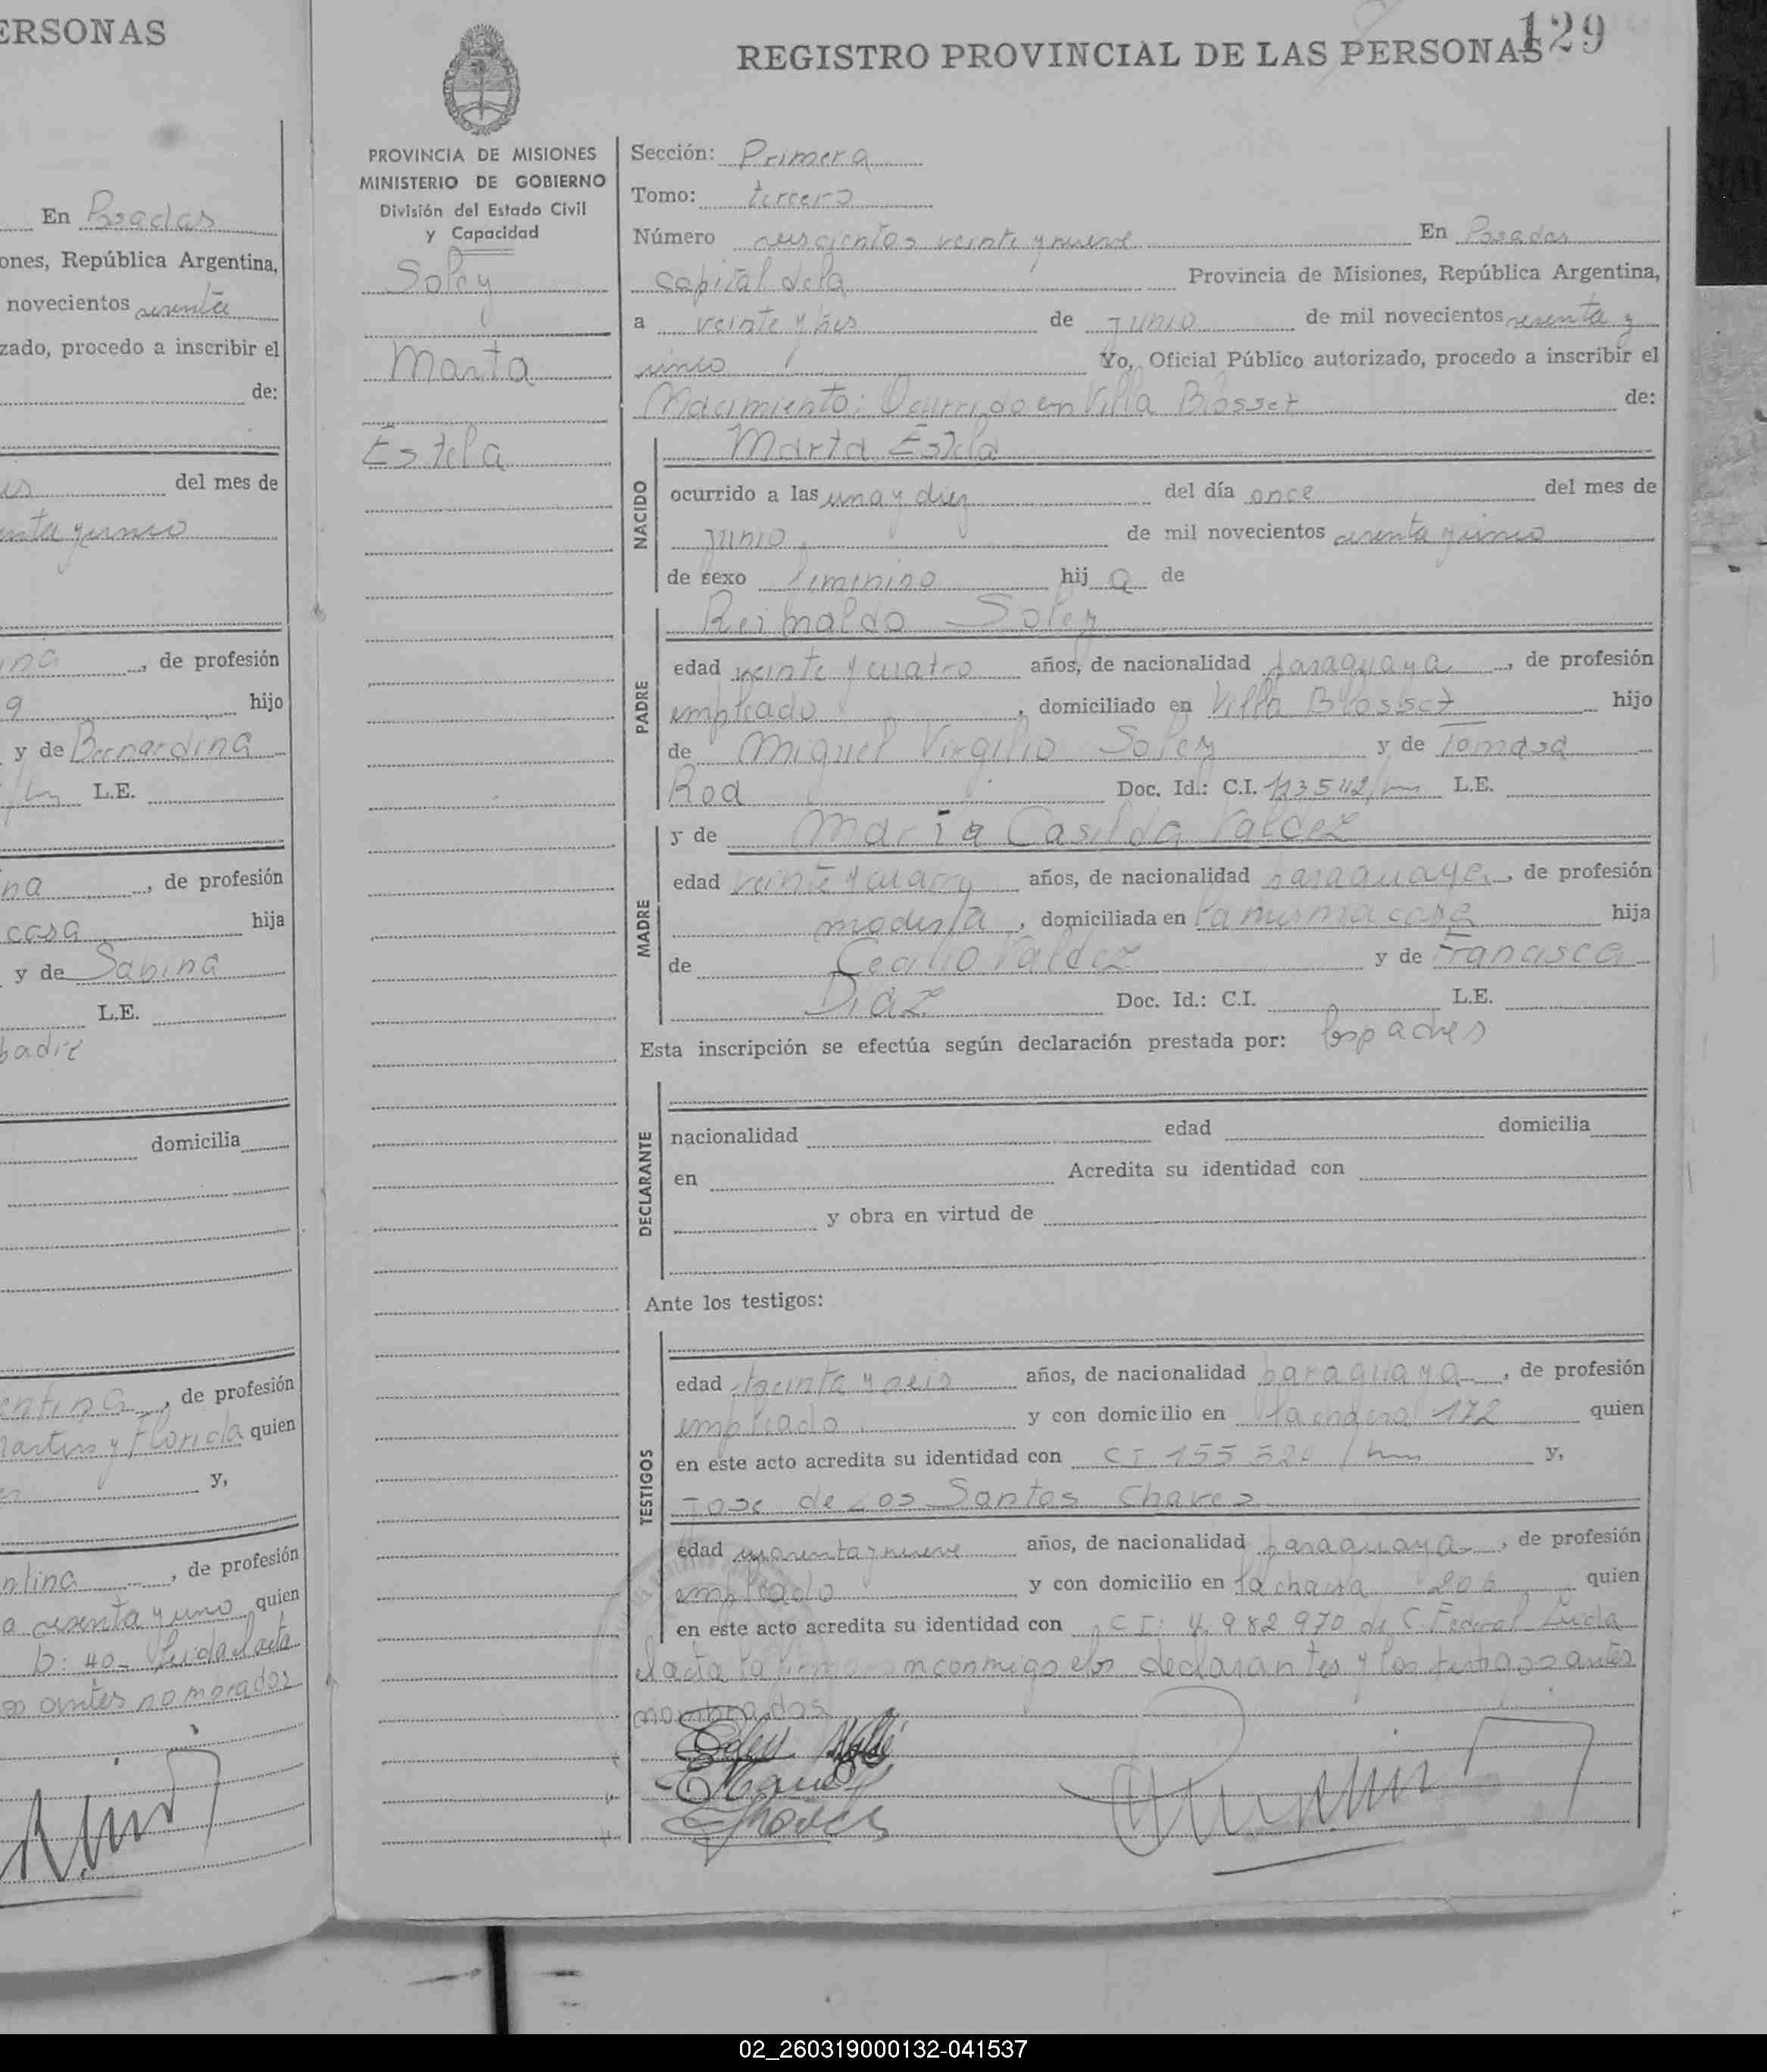 ERSONAS
En Posadas
ones, República Argentina,
novecientos sesenta
zado, procedo a inscribir el
de:
del mes de
enta y cinco
ina, de profesión
9 hijo
y de Bernardina
L.E.
na, de profesión
casa hija
y de Sabina
L.E.
padre
domicilia
entina, de profesión
Martin y Florida quien
y,
ntina, de profesión
a sesenta y uno quien
D: 40- Leida el acta
antes nombrados
129
REGISTRO PROVINCIAL DE LAS PERSONAS
PROVINCIA DE MISIONES
MINISTERIO DE GOBIERNO
División del Estado Civil
y Capacidad
Soley
Marta
Estela
Sección: Primera
Tomo: tercero
Número seiscientos veinte y nueve En Posadas
capital de la Provincia de Misiones, República Argentina,
a veinte y tres de junio de mil novecientos sesenta y
cinco Yo, Oficial Público autorizado, procedo a inscribir el
Nacimiento: Ocurrido en Villa Blosset de:
Marta Estela
NACIDO
ocurrido a las una y diez del día once del mes de
junio de mil novecientos sesenta y cinco
de sexo femenino hij a de
PADRE
Reimaldo Soley
edad veinte y cuatro años, de nacionalidad paraguaya, de profesión
empleado, domiciliado en Villa Blosset hijo
de Miguel Virgilio Soley y de Tomasa
Rod Doc. Id.: C.I. L.E.
MADRE
y de Maria Casilda Valdez
edad veinte y cuatro años, de nacionalidad paraguaya, de profesión
modista, domiciliada en la misma casa hija
de Cecilio Valdez y de Francisca
Diaz Doc. Id.: C.I. L.E.
Esta inscripción se efectúa según declaración prestada por: los padres
DECLARANTE
nacionalidad edad domicilia
en Acredita su identidad con
y obra en virtud de
Ante los testigos:
TESTIGOS
edad treinta y seis años, de nacionalidad paraguaya, de profesión
empleado y con domicilio en la chacra 172 quien
en este acto acredita su identidad con CI 155 520 y,
Jose de Los Santos Chaves
edad cuarenta y nueve años, de nacionalidad paraguaya, de profesión
empleado y con domicilio en la chacra 206 quien
en este acto acredita su identidad con CI: 4.982 970 de C. Federal Leida
el acta la firman conmigo los declarantes y los testigos antes
nombrados
02_260319000132-041537